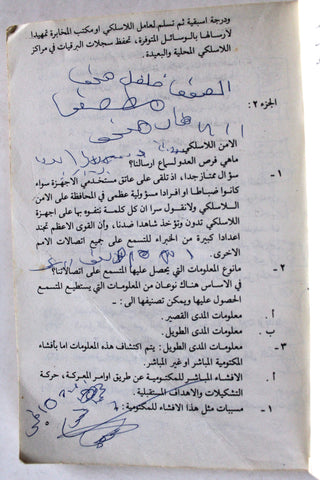 ودرجة اسبقية ثم تسلم لعاملي اللاسلكي او مكتب المخابرة تمهيدا
لأرسالها بالوسائل المتوفرة، تحفظ سجلات البرقيات في مراكز
اللاسلكي المحلية والبعيدة.
الجزء ٢ :
الامن اللاسلكي
ماهي فرص العدو لسماع ارسالنا؟
١ - سؤال ممتاز جدا، اذ تلقى على عاتق مستخدمي الأجهزة سواء
كانوا ضباطا او افرادا مسؤولية عظمى في المحافظة على الامن
اللاسلكي ولانقول سرا ان كل كلمة نتفوه بها على اجهزة
اللاسلكي تدون وتؤخذ شاهدا ضدنا، وأن القوى الاعظم تجند
اعدادا كبيرة من الخبراء للتسمع على جميع اتصالات الامم
الاخرى.
٢ - مانوع المعلومات التي يحصل عليها المتسمع على اتصالاتنا؟
في الاساس هناك نوعان من المعلومات التي يستطيع المتسمع
الحصول عليها ويمكن تصنيفها الى : -
أ. معلومات المدى القصير.
ب. معلومات المدى الطويل.
٣ - معلومات المدى الطويل : يتم اكتشاف هذه المعلومات اما بأفشاء
المكتومية المباشر او غير المباشر.
أ. الافشاء المباشر للمكتومية عن طريق اوامر المعركة، حركة
التشكيلات والاهداف المستقبلية.
١ - مسببات مثل هذا الافشاء للمكتومية :